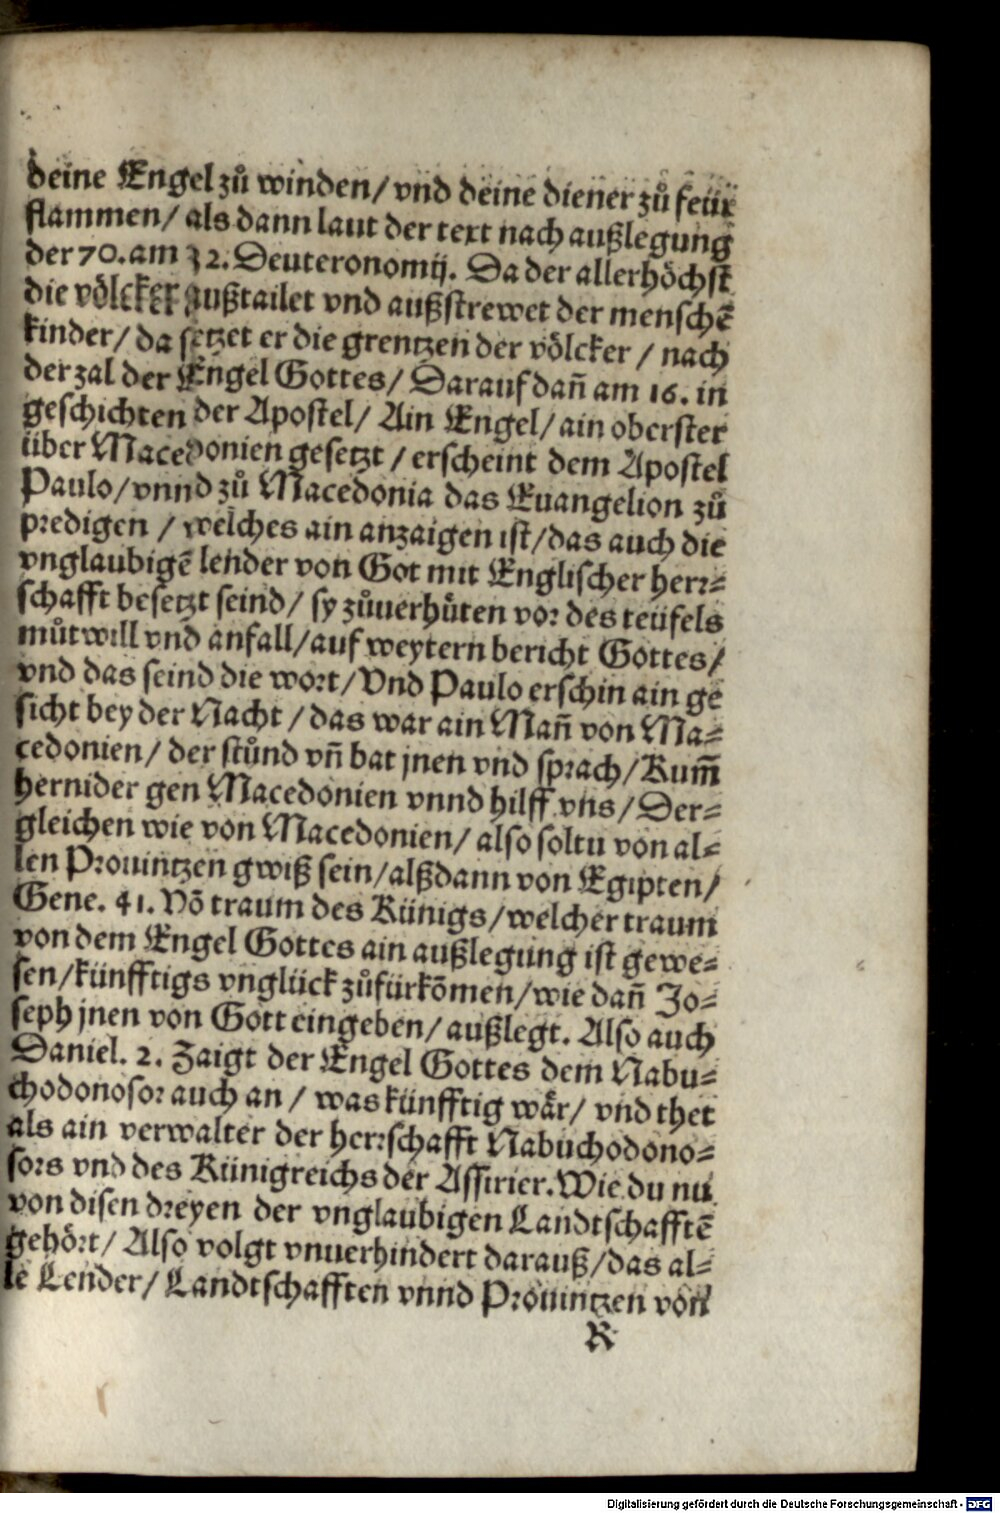 deine Engel zů winden/ vnd deine diener zů feür
flammen/ als dann laut der text nach außlegung
der 70. am 32. Deuteronomij. Da der allerhöchst
die völcker außtailet vnd außstrewet der menschē
kinder/ da setzet er die grentzen der völcker / nach
der zal der Engel Gottes/ Darauf dañ am 16. in
geschichten der Apostel/ Ain Engel/ ain oberster
über Macedonien gesetzt / erscheint dem Apostel
Paulo/ vnnd zů Macedonia das Euangelion zů
predigen / welches ain anzaigen ist/ das auch die
vnglaubigē lender von Got mit Englischer herr⸗
schafft besetzt seind/ sy zůuerhüten vor des teüfels
můtwill vnd anfall/ auf weytern bericht Gottes/
vnd das seind die wort/ Vnd Paulo erschin ain ge
sicht bey der Nacht / das war ain Mañ von Ma⸗
cedonien/ der stůnd vñ bat jnen vnd sprach/ Kum̃
hernider gen Macedonien vnnd hilff vns/ Der⸗
gleichen wie von Macedonien/ also soltu von al⸗
len Prouintzen gwiß sein/ alßdann von Egipten/
Gene. 41. Võ traum des Künigs/ welcher traum
von dem Engel Gottes ain außlegung ist gewe⸗
sen/ künfftigs vnglück zůfürkõmen/ wie dañ Jo⸗
seph jnen von Gott eingeben/ außlegt. Also auch
Daniel. 2. Zaigt der Engel Gottes dem Nabu⸗
chodonosor auch an / was künfftig wår/ vnd thet
als ain verwalter der herrschafft Nabuchodono⸗
sors vnd des Künigreichs der Assirier. Wie du nu
von disen dreyen der vnglaubigen Landtschafftē
gehört/ Also volgt vnuerhindert darauß/ das al⸗
le Lender/ Landtschafften vnnd Prouintzen von
R
Digitalisierung gefördert durch die Deutsche Forschungsgemeinschaft - DFG